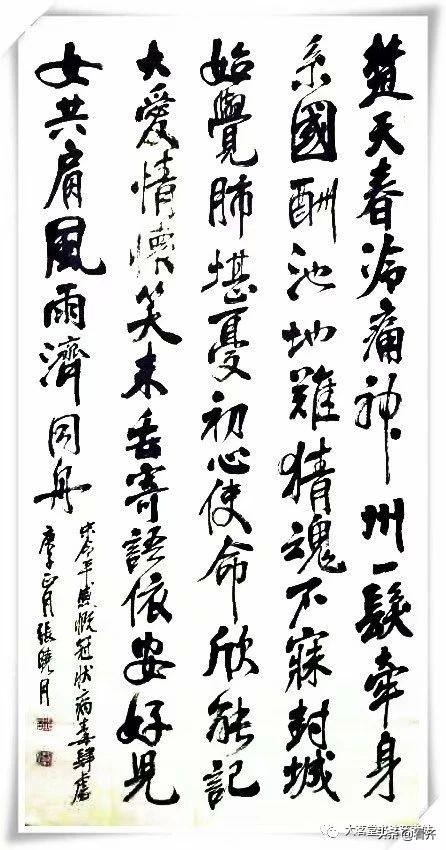 楚天春冷痛神州一髮牽身
系國酬池地難猜魂不寐封城
始覺肺堪憂初心使命欣能記
大愛情懷笑未丢寄語依安好兒
女共肩風雨濟同舟
感慨冠狀病毒肆虐
庚子正月張曉月